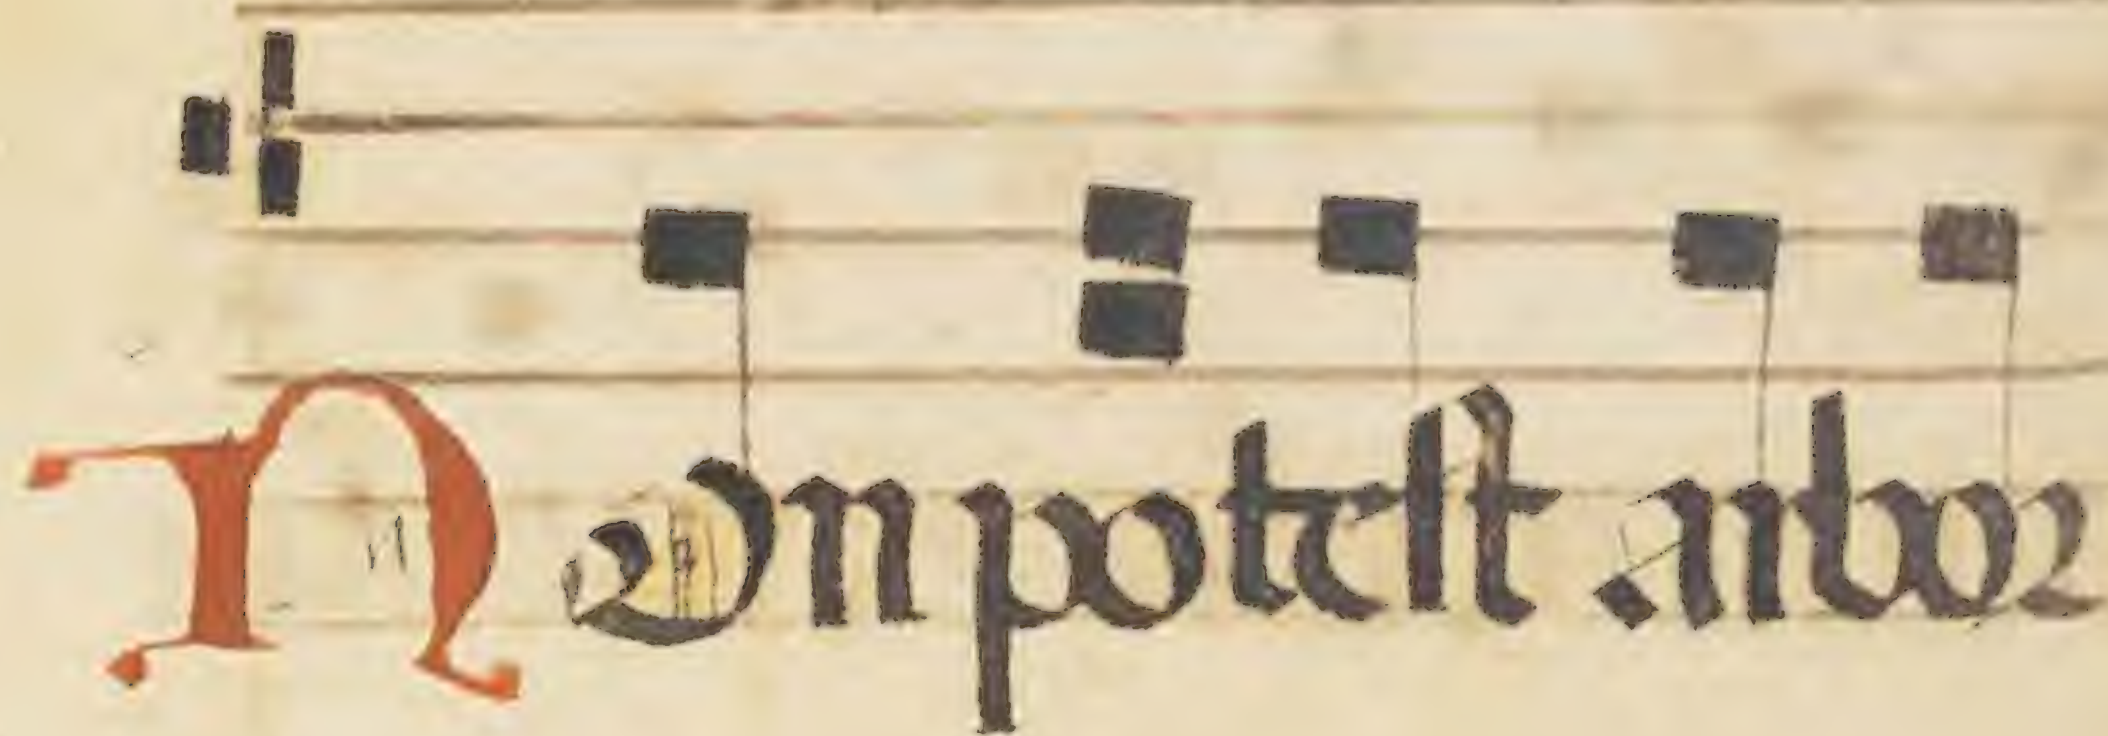 Non potest arbor